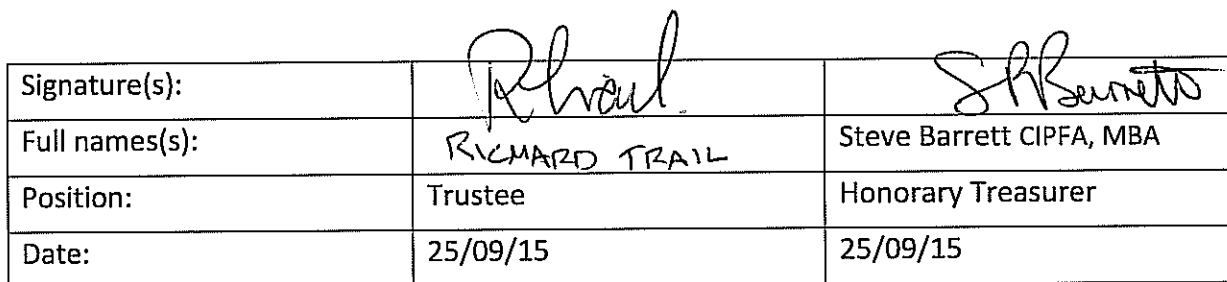 Signature(s):
Full names(s): RICHARD TRAIL Steve Barrett CIPFA, MBA
Position: Trustee Honorary Treasurer
Date: 25/09/15 25/09/15